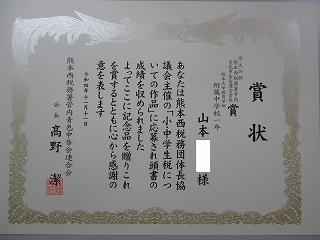 賞状
附属中学校一年
山本
様
あなたは熊本西税務団体長協
議会主催の「小・中学生税につ
いての作品」に応募され頭書の
成績を収められました
よってここに記念品を贈りこれ
を賞するとともに心から感謝の
意を表します
令和四年十一月十一日
熊本西税務署管内青色申告会連合会
会長
髙野 潔